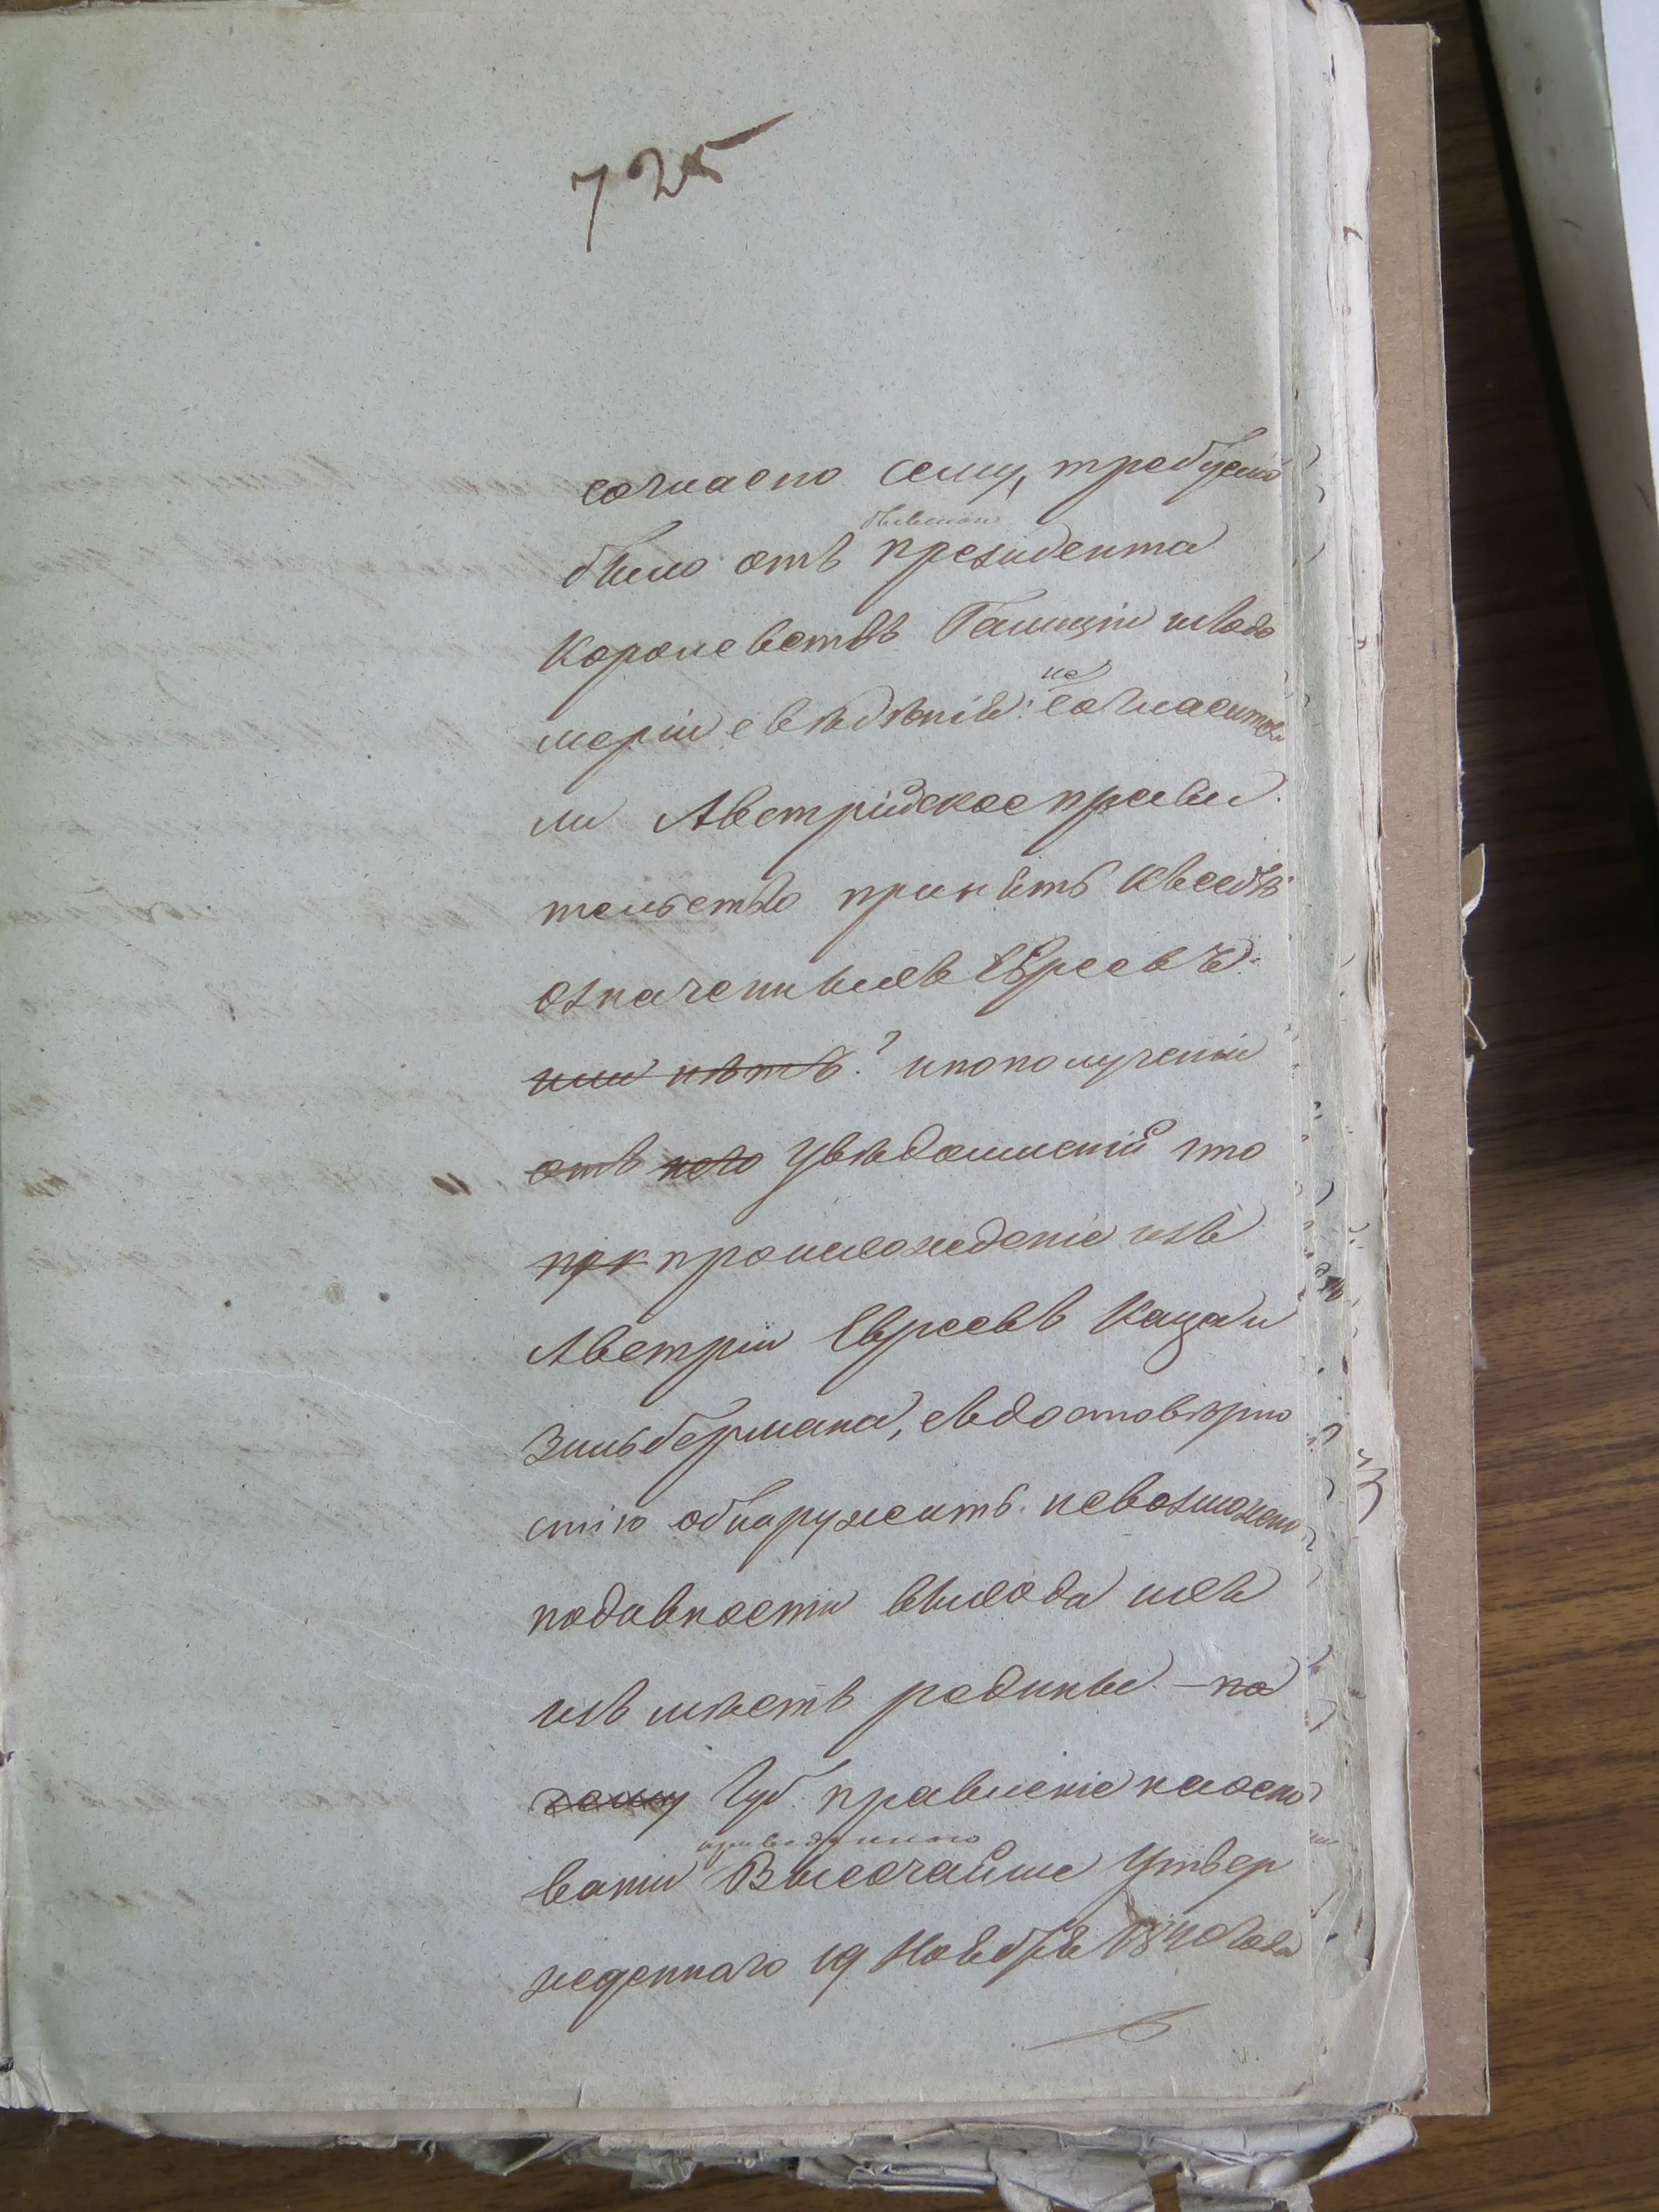 725
согласно сему, требуемо
бывшаго
было отъ президента
Королевствъ Галиціи и Лодо
не
меріи свѣдѣніе: согласится
ли Австрійское прави
тельство принять къ себѣ
означенныхъ Евреевъ
или нѣтъ? и по полученіи
отъ него увѣдомленій что
происхожденіе изъ
Австріи Евреевъ Каца и
Зильбермана, съ достовѣрно
стію обнаружить невозможно
по давности выхода ихъ
изъ мѣстъ родины — по
чему Губ. правленіе на осно
приведеннаго
ваніи Высочайше утвер
жденнаго 19 Ноября 1840 года